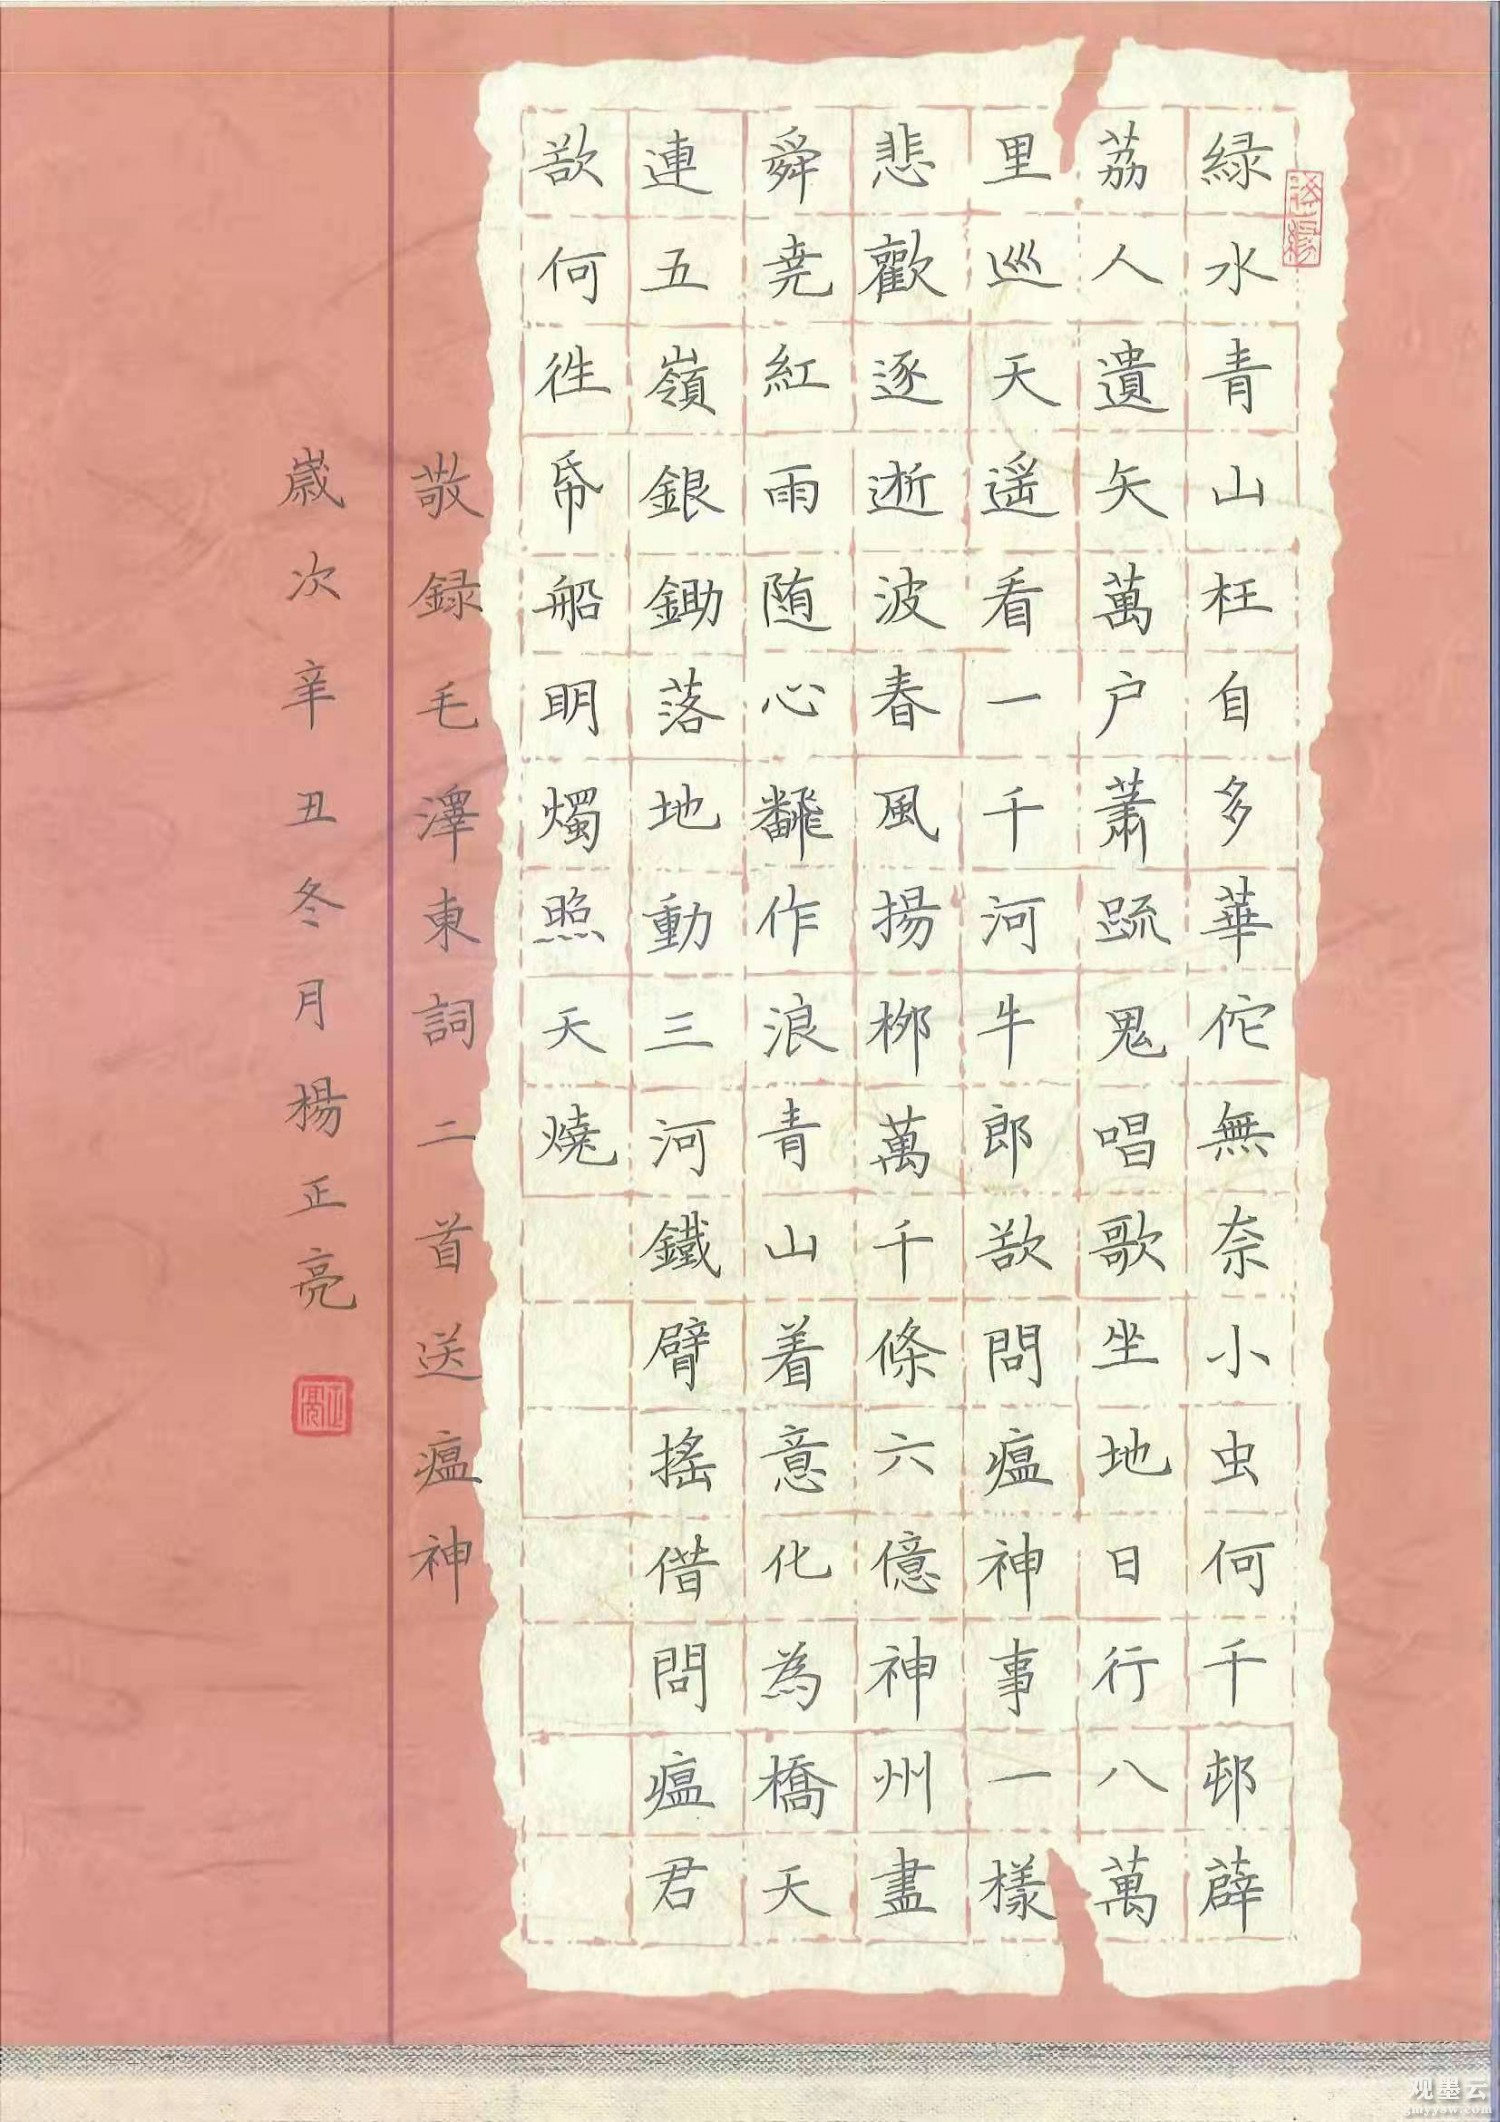 綠水青山枉自多華佗無奈小虫何千邨薜
荔人遺矢萬户蕭疏鬼唱歌坐地日行八萬
里巡天遥看一千河牛郎欲問瘟神事一樣
悲歡逐逝波春風揚柳萬千條六億神州盡
舜尭紅雨随心飜作浪青山着意化為橋天
連五嶺銀鋤落地動三河鐵臂搖借問瘟君
欲何徃帋船明燭照天燒
敬録毛澤東詞二首送瘟神
歲次辛丑冬月楊正亮
正亮
观墨云
jmyysw.com